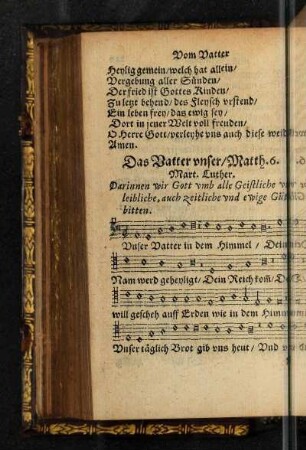 Vom Vatter
Heylig gemein/ welch hat allein/
Vergebung aller Sünden/
Der fried ist Gottes Kinden/
Zu letzt behend/ des Fleysch vrstend/
Ein leben frey/ das ewig sey/
Dort in jener Welt voll freuden/
O Herre Gott/ verleyhe vns auch diese
Amen.
Das Vatter vnser/ Matth. 6.
Mart. Luther.
Darinnen wir Gott vmb alle Geistliche vnd
leibliche, auch zeitliche vnd ewige
bitten.
Vnser Vatter in dem Himmel/ Dein
Nam werd geheyligt/ Dein Reich kom̃/
will gescheh auff Erden wie in dem
Vnser täglich Brot gib vns heut/ Vnd